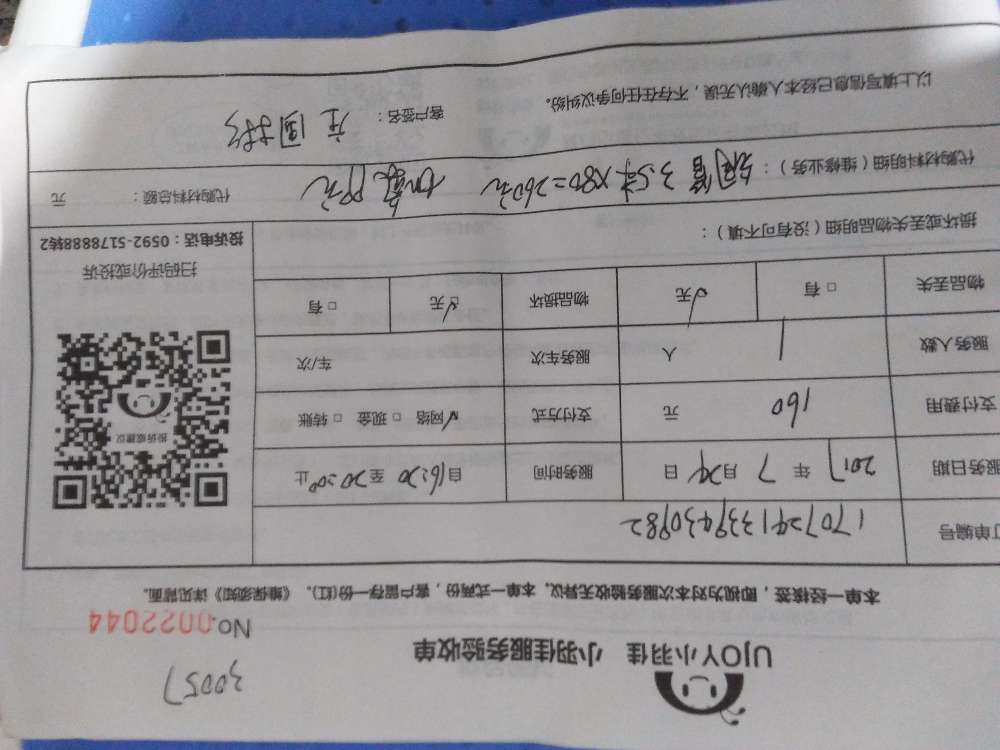 30057
UJOY小羽佳 小羽佳服务验收单
No.0022044
本单一经核签，即视为对本次服务验收无异议。本单一式两份，客户留存一份(红)。《维保须知》详见背面。
订单编号 1707241339430982
服务日期 2017 年 7 月 24 日 服务时间 自 16:20 至 20:30 止
支付费用 160 元 支付方式 ☑ 网络 □ 现金 □ 转账
服务人数 1 人 服务车次 车/次
物品丢失 □ 有 ☑ 无 物品损坏 ☑ 无 □ 有
投诉或建议
扫码评价或投诉
投诉电话：0592-5178888转2
损坏或丢失物品明细（没有可不填）：
代购材料明细（维修业务）：铜管 3.5米×80=260元
代购材料总额： 元
以上填写信息已经本人确认无误，不存在任何争议纠纷。 客户签名：